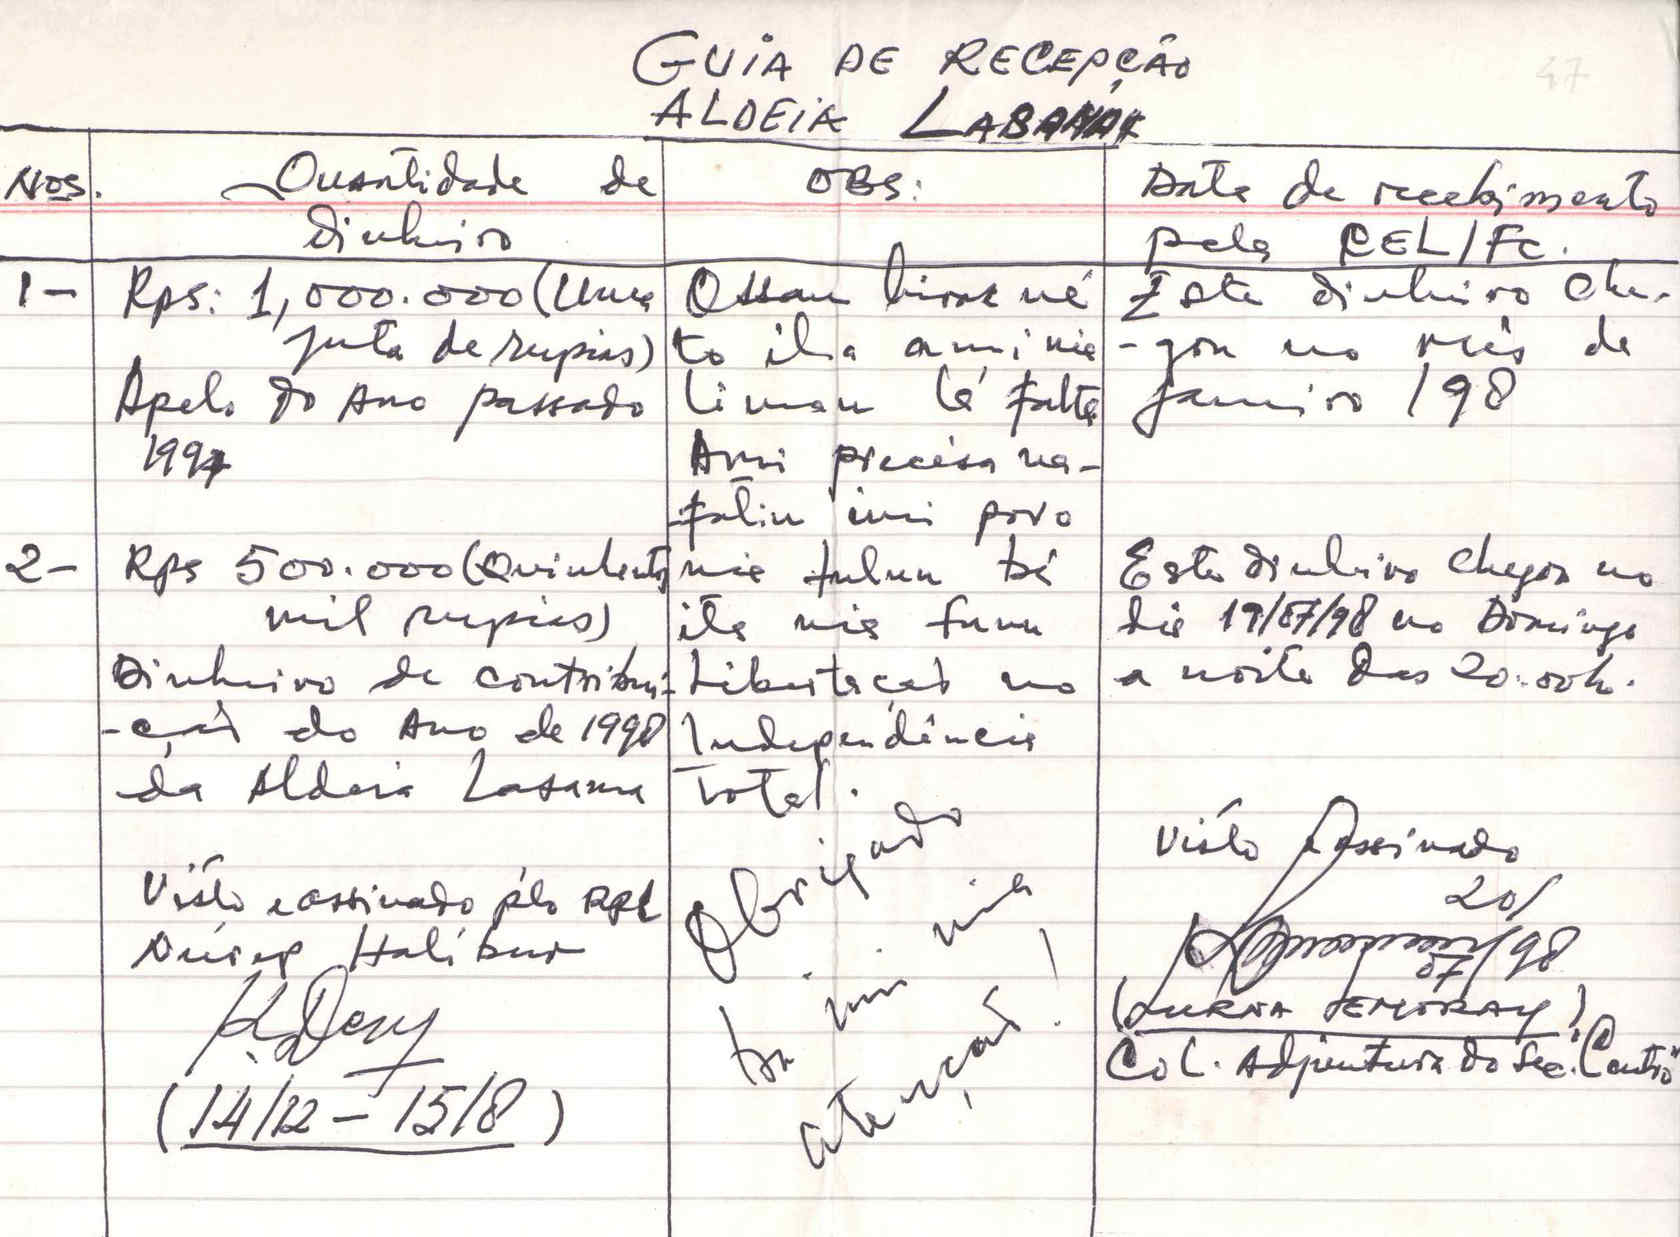 47
GUIA DE RECEPÇÃO
ALDEIA
NOS.
Quantidade de
dinheiro
OBS:
Data de recebimento
pela CEL/FC.
1-
Rps: 1,000.000 (Uma
juta de rupias)
Apelo do Ano passado
1997
2-
Rps 500.000 (Quinhentos
mil rupias)
Dinheiro de contribui-
-ção do Ano de 1998
da Aldeia Lasama
Visto e assinado pelo
Halibur
(14/12 - 15/8)
Ossan hirak né
to iha ami nia
liman lé falta
Ami precisa na-
fatin imi povo
nia tulun bá
ita nia funu
Libertação no
Independência
Total.
Obrigado
ba imi nia
atenção!
Este dinheiro che-
-gou no mês de
janeiro/98
Este dinheiro chegou no
dia 19/07/98 no Domingo
a noite das 20.00h.
Visto Assinado
20/
07/98
(LURNA TEMORAY)
Col. Adjuntura do Sec. "Centro"